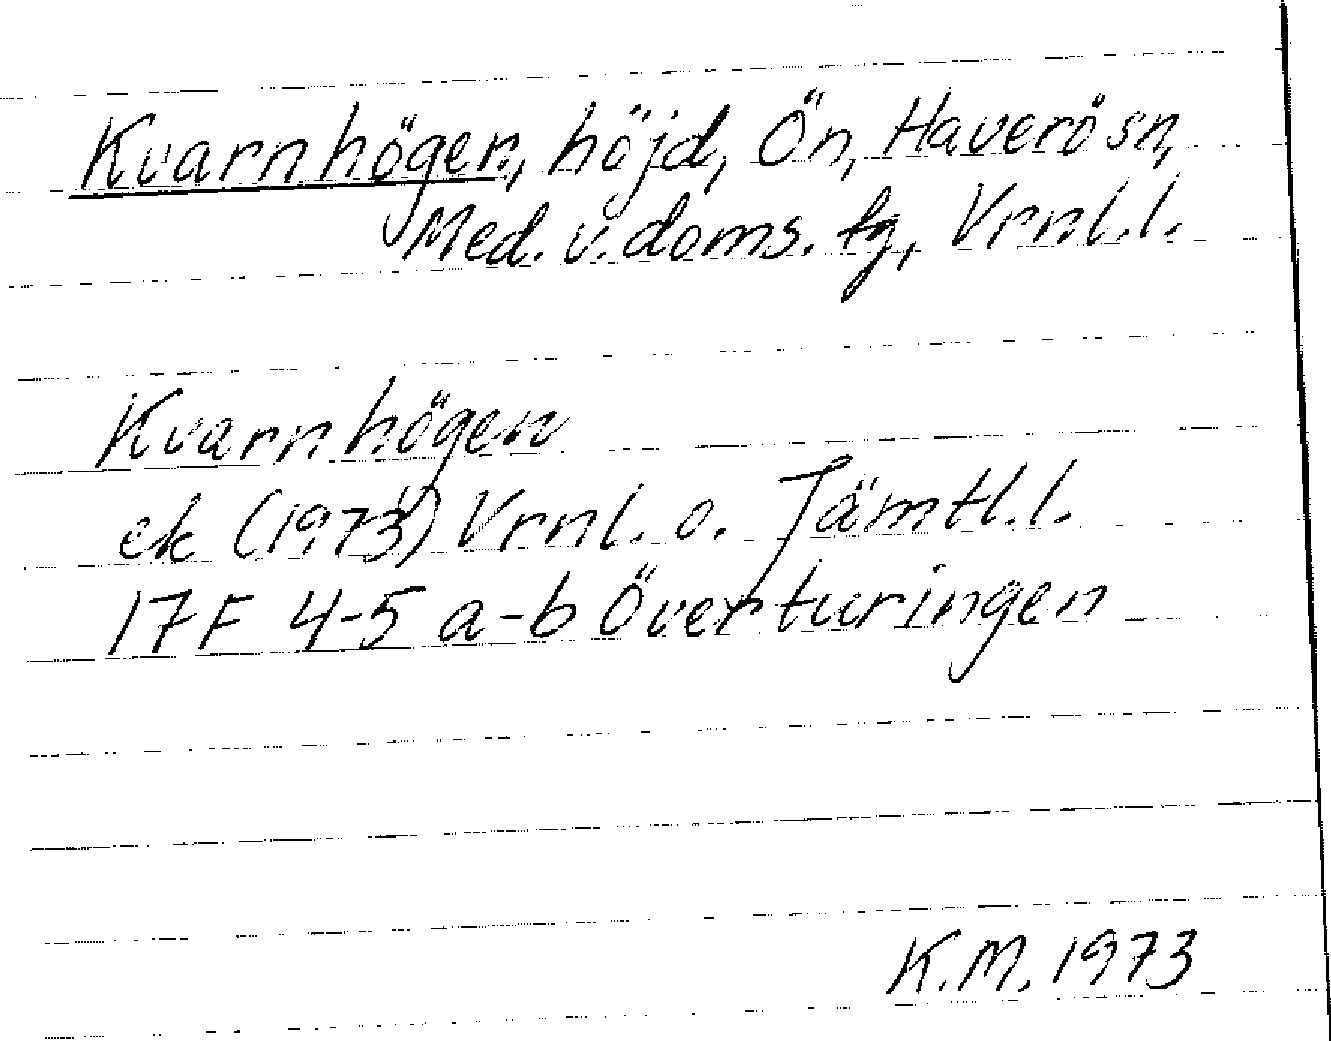 Kvarnhögen, höjd, Ön, Haverösn,
Med. v. doms. tg, Vrnl.l.
Kvarnhögen
ek (1973) Vrnl. o. Jämtl.l.
17F 4-5 a-b Överturingen
K.M. 1973